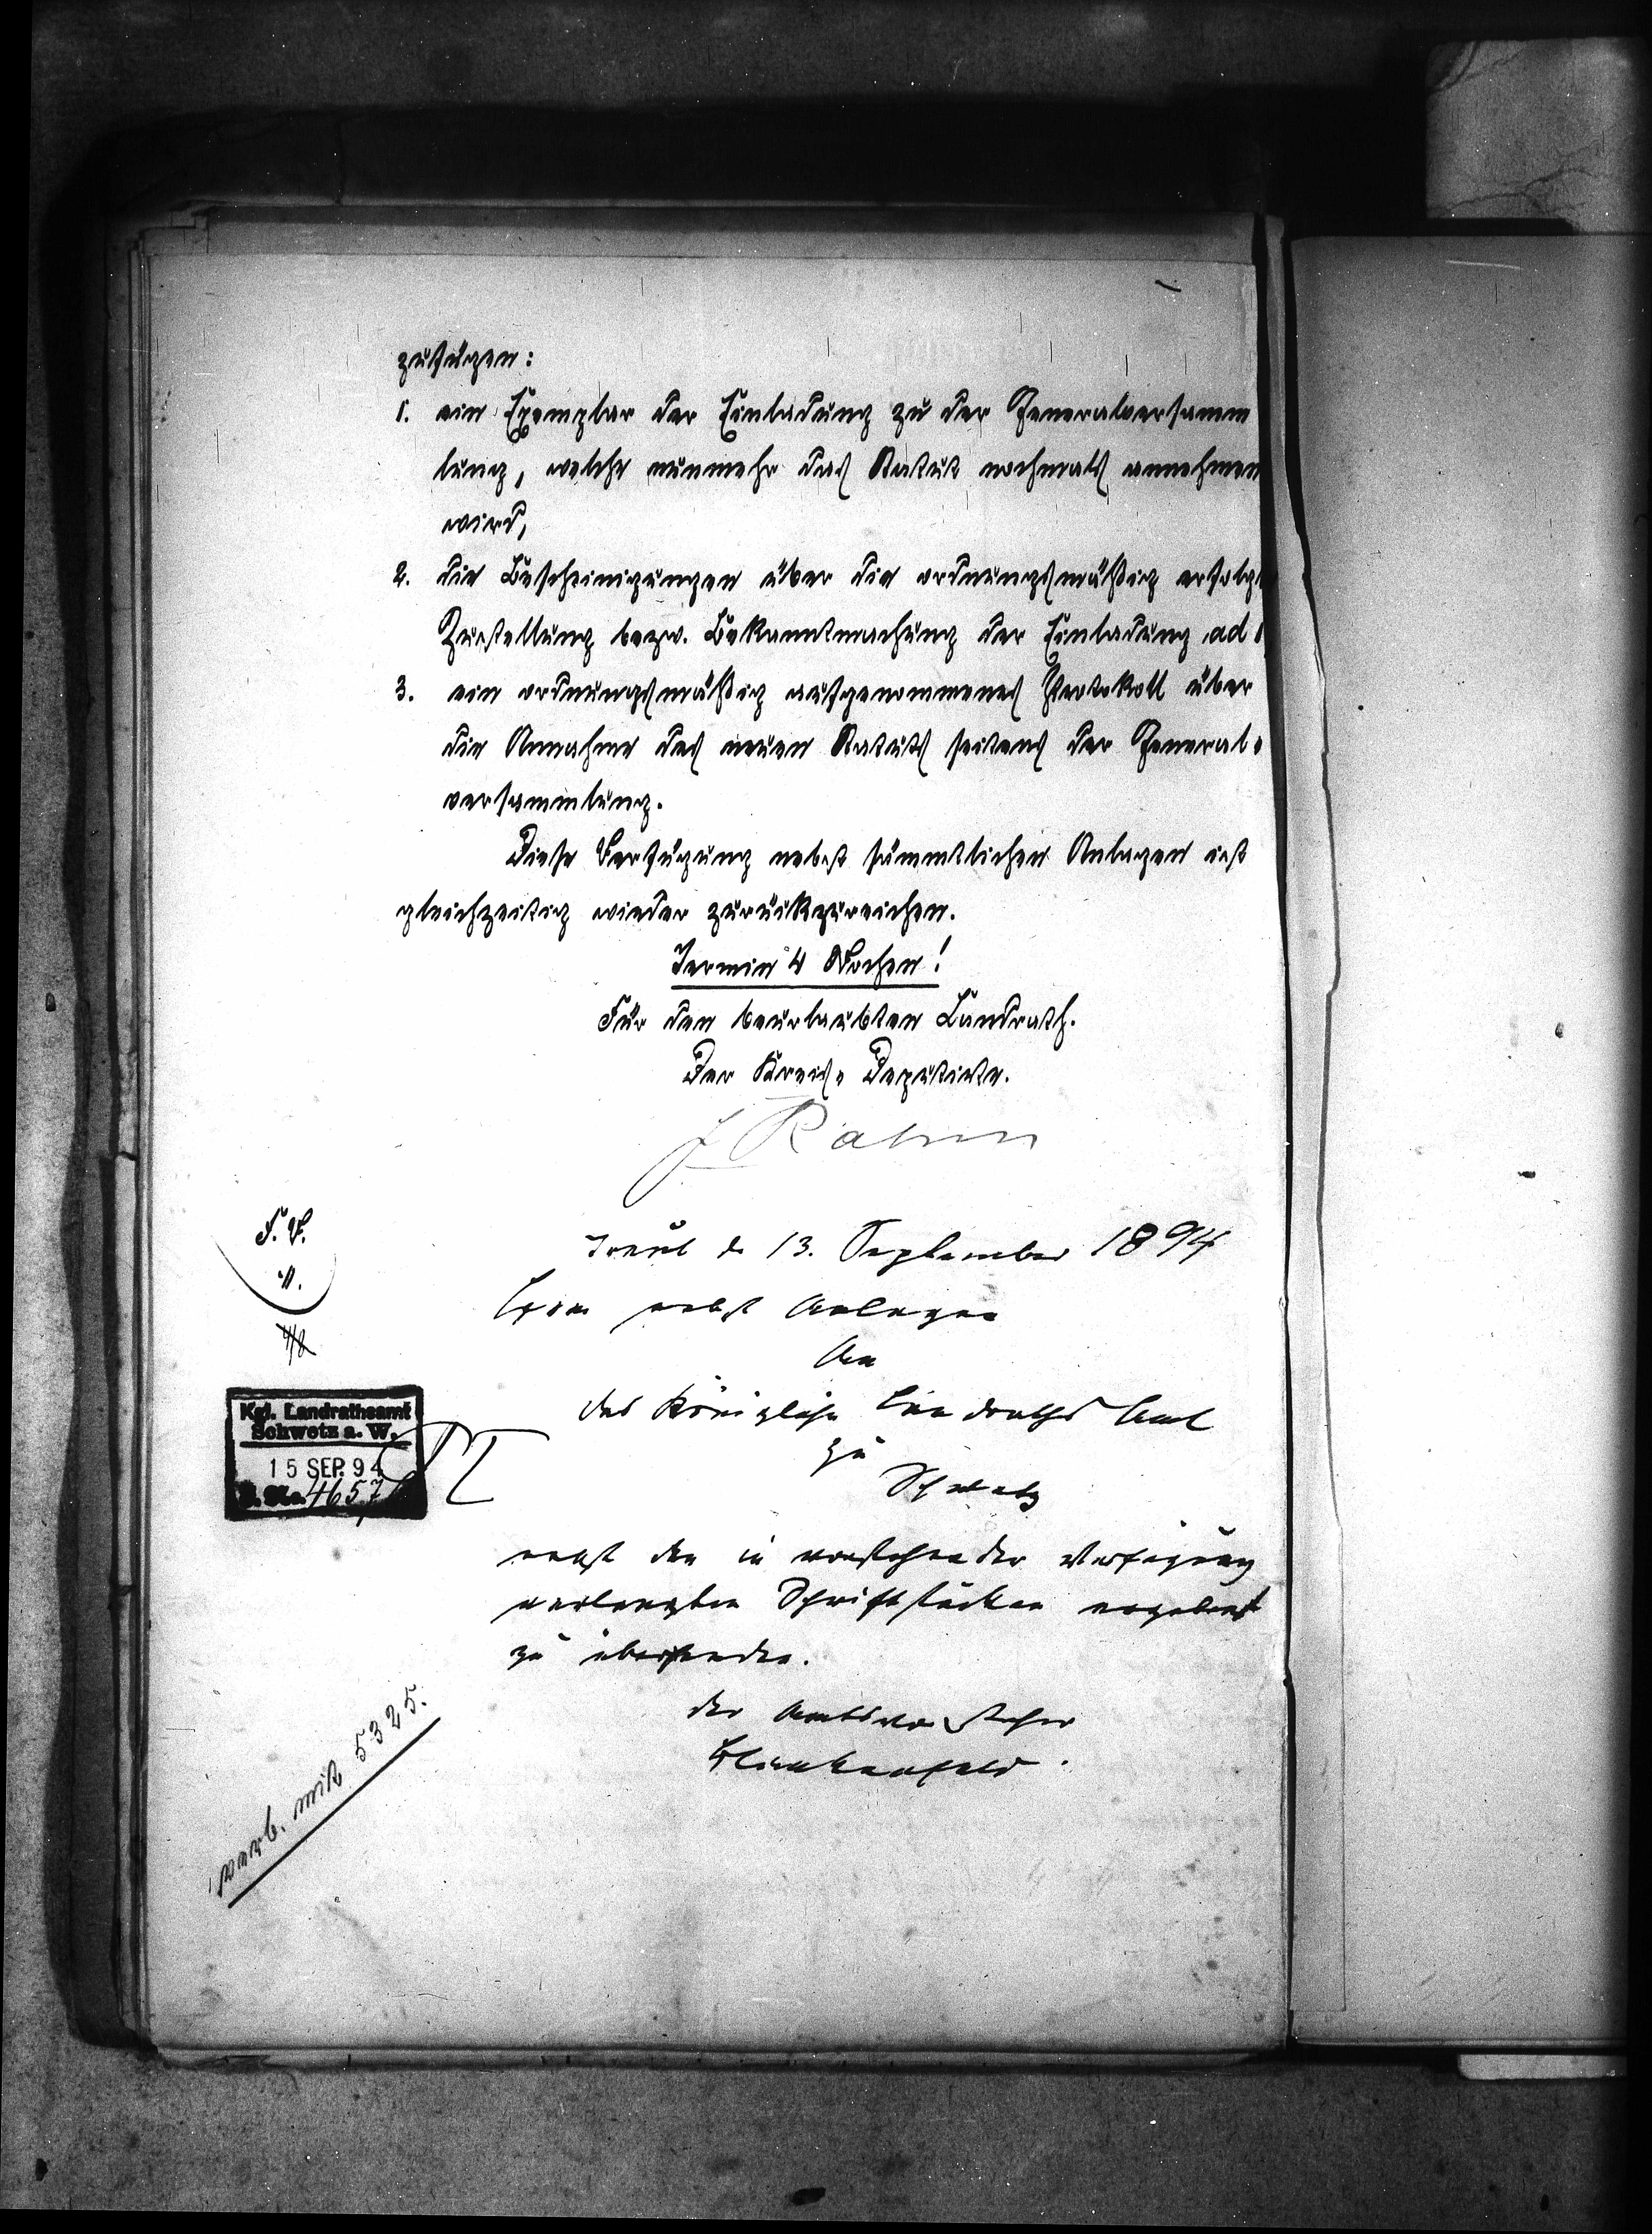 zufügen:
1. ein Exemplar der Einladung zu der Generalversamm
lung, welche nunmehr das Statut nochmals annehmen
wird,
2. die Bescheinigungen über die ordnungsmäßig erfolgt
Zustellung bezw. Bekanntmachung der Einladung ad 1
3. ein ordnungsmäßig aufgenommenes Protokoll über
die Annahme des neuen Statuts seitens der General-
versammlung.
Diese Verfügung nebst sämmtlichen Anlagen ist
gleichzeitig wieder zurückzureichen.
Termin 4 Wochen!
Für den beurlaubten Landrath.
Der Kreis-Deputirte.
Rahm
d. 13. September 1894
nebst Anlagen
An
das Königliche Landraths Amt
zu
Schwetz
nebst den in vorstehender Verfügung
verlangten Schriftstücken ergebenst
zu übersenden.
der Amtsvorsteher
Kgl. Landrathsamt
Schwetz a. W.
15 SEP. 94
4657
verb. mit 5325.